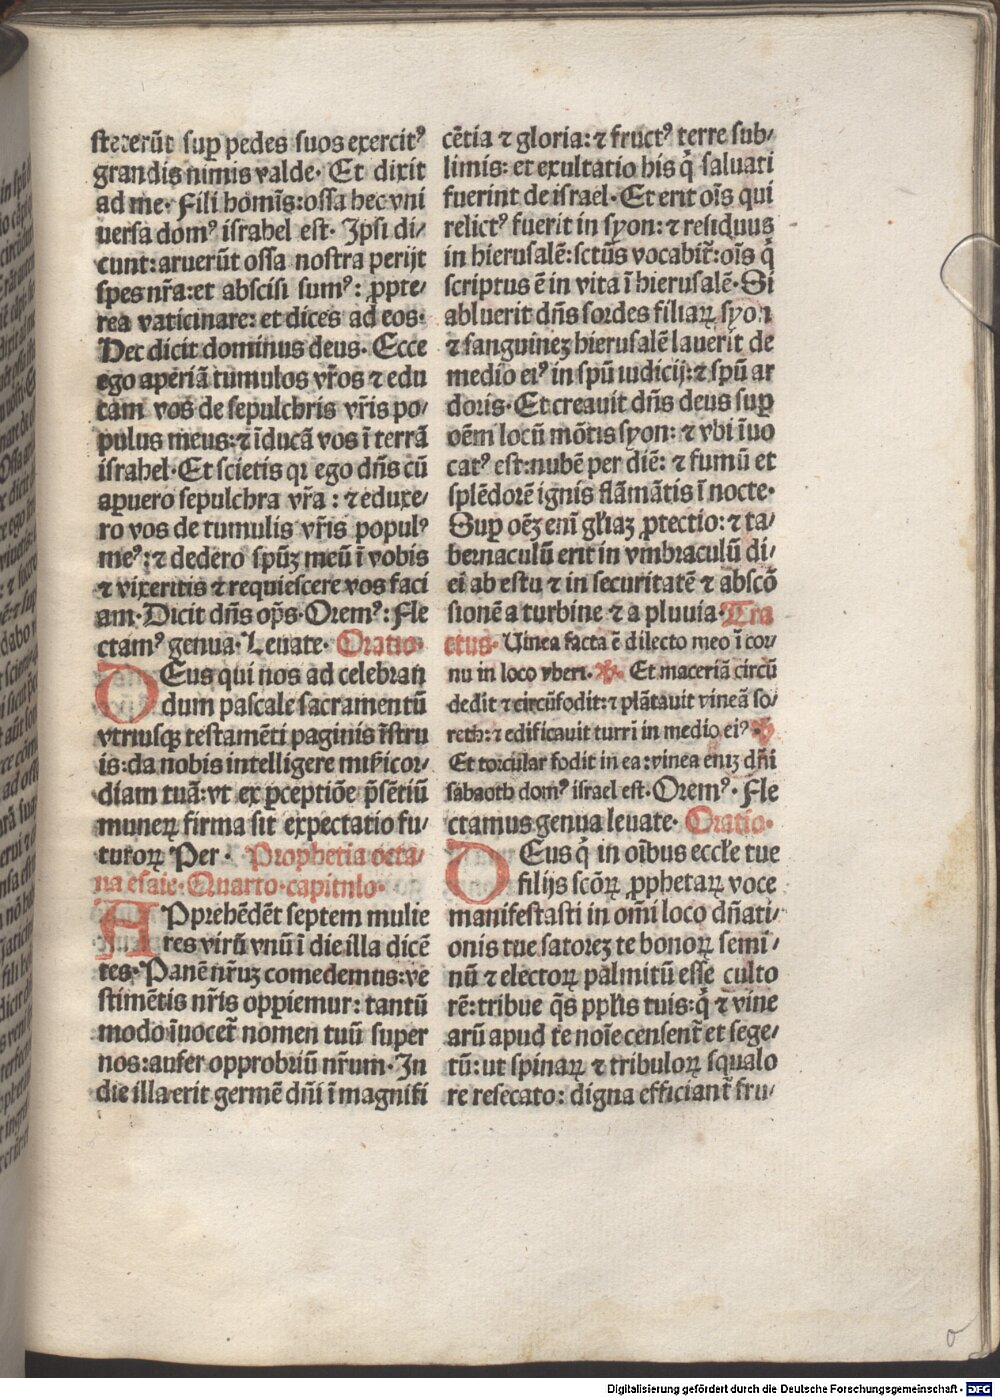 steterūt sup̱ pedes suos exercitꝰ
grandis nimis valde· Et dixit
ad me· Fili homīs: ossa hec vni
uersa domꝰ israhel est· Ipsi di⸗
cunt: aruerūt ossa nostra perijt
spes nr̄a: et abscisi sumꝰ: ꝓpte⸗
rea vaticinare: et dices ad eos·
Hec dicit dominus deus· Ecce
ego aperiā tumulos vr̄os ⁊ edu
cam vos de sepulchris vr̄is po⸗
pulus meus: ⁊ īducā vos ī terrā
israhel· Et scietis qꝛ ego dn̄s cū
apuero sepulchra vr̄a: ⁊ eduxe⸗
ro vos de tumulis vr̄is populꝰ
meꝰ: ⁊ dedero spūꝫ meū ī vobis
⁊ vixeritis ⁊ requiescere vos faci
am· Dicit dn̄s op̄s· Oremꝰ: Fle
ctamꝰ genua· Leuate· Oratio·
DEus qui nos ad celebran
dum pascale sacramentū
vtriusqꝫ testamēti paginis īstru
is: da nobis intelligere mi̅sicor⸗
diam tuā: vt ex ꝑceptiōe p̄sētiū
munerꝝ firma sit expectatio fu⸗
turorꝝ Per· Prophetia octa⸗
ua esaie· Quarto· capitulo·
APprehēdēt septem mulie
res virū vnū ī die illa dicē
tes· Panē nr̄uꝫ comedemus: ve
stimētis nr̄is opꝑiemur: tantū
modo īuocet̄ nomen tuū super
nos: aufer opprobriū nr̄um· In
die illa erit germē dn̄i ī magnifi
cētia ⁊ gloria: ⁊ fructꝰ terre sub⸗
limis: et exultatio his q̄ saluati
fuerint de israel· Et erit oīs qui
relictꝰ fuerit in syon: ⁊ residuus
in hierusalē: sctūs vocabit̄: oīs q̄
scriptus ē in vita ī hierusalē· Si
abluerit dn̄s sordes filiarꝝ syon
⁊ sanguineꝫ hierusalē lauerit de
medio eiꝰ in spū iudicij: ⁊ spū ar
doris· Et creauit dn̄s deus sup̱
oēm locū mōtis syon: ⁊ vbi īuo
catꝰ est: nubē per diē: ⁊ fumū et
splēdorē ignis flāmātis ī nocte·
Sup̱ oēꝫ eni̅ gl̄iaꝫ ꝓtectio: ⁊ ta⸗
bernaculū erit in vmbraculū di⸗
ei ab estu ⁊ in securitatē ⁊ abscō
sionē a turbine ⁊ a pluuia· Tra
ctus· Uinea facta ē dilecto meo ī cor⸗
nu in loco vberi· Et maceriā circū
dedit ⁊ circūfodit: ⁊ plātauit vineā so⸗
reth: ⁊ edificauit turrī in medio eiꝰ
Et torcular fodit in ea: vinea eniꝫ dn̄i
sabaoth domꝰ israel est· Oremꝰ· Fle
ctamus genua leuate· Oratio·
DEus q̄ in oībus eccl̄e tue
filijs scōrꝝ ꝓphetarꝝ voce
manifestasti in om̄i loco dn̄ati⸗
onis tue satoreꝫ te bonorꝝ semi⸗
nū ⁊ electorꝝ palmitū esse culto
rē: tribue q̄s ppl̄is tuis: q̄ ⁊ vine
arū apud te noīe censent̄ et sege⸗
tū: ut spinarꝝ ⁊ tribulorꝝ squalo
re resecato: digna efficiant̄ fru⸗
Digitalisierung gefördert durch die Deutsche Forschungsgemeinschaft - DFG